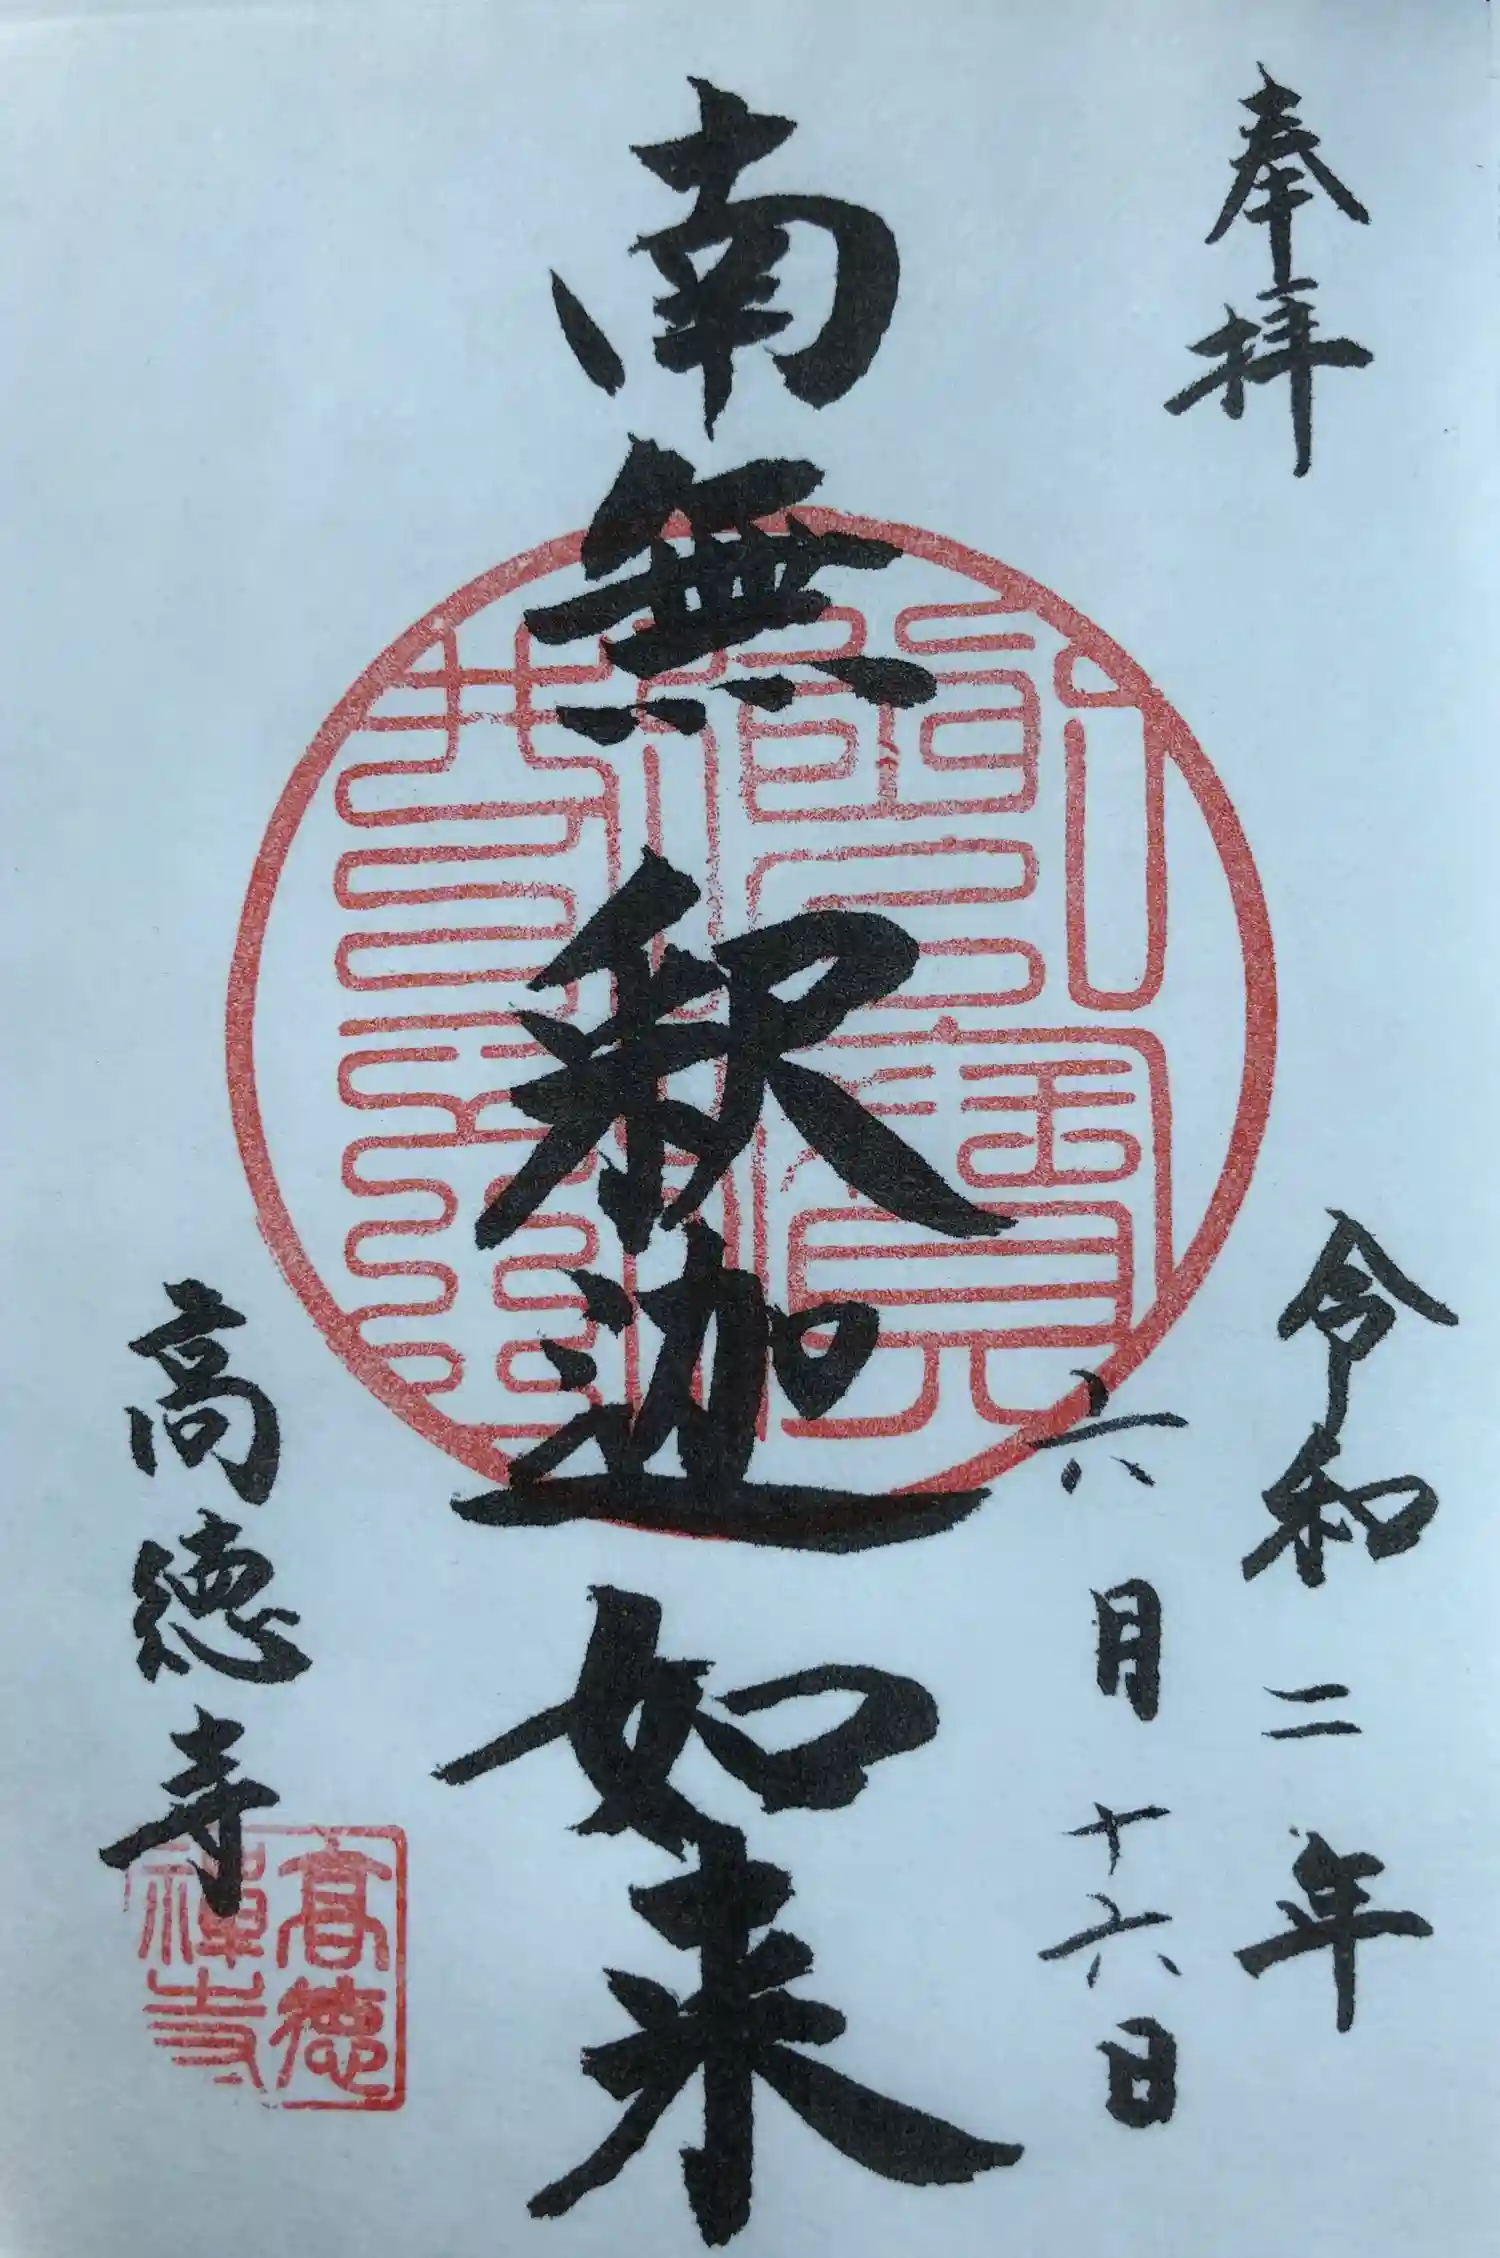 奉拝
令和二年
六月十六日
南無釈迦如来
高徳寺
高徳
禅寺